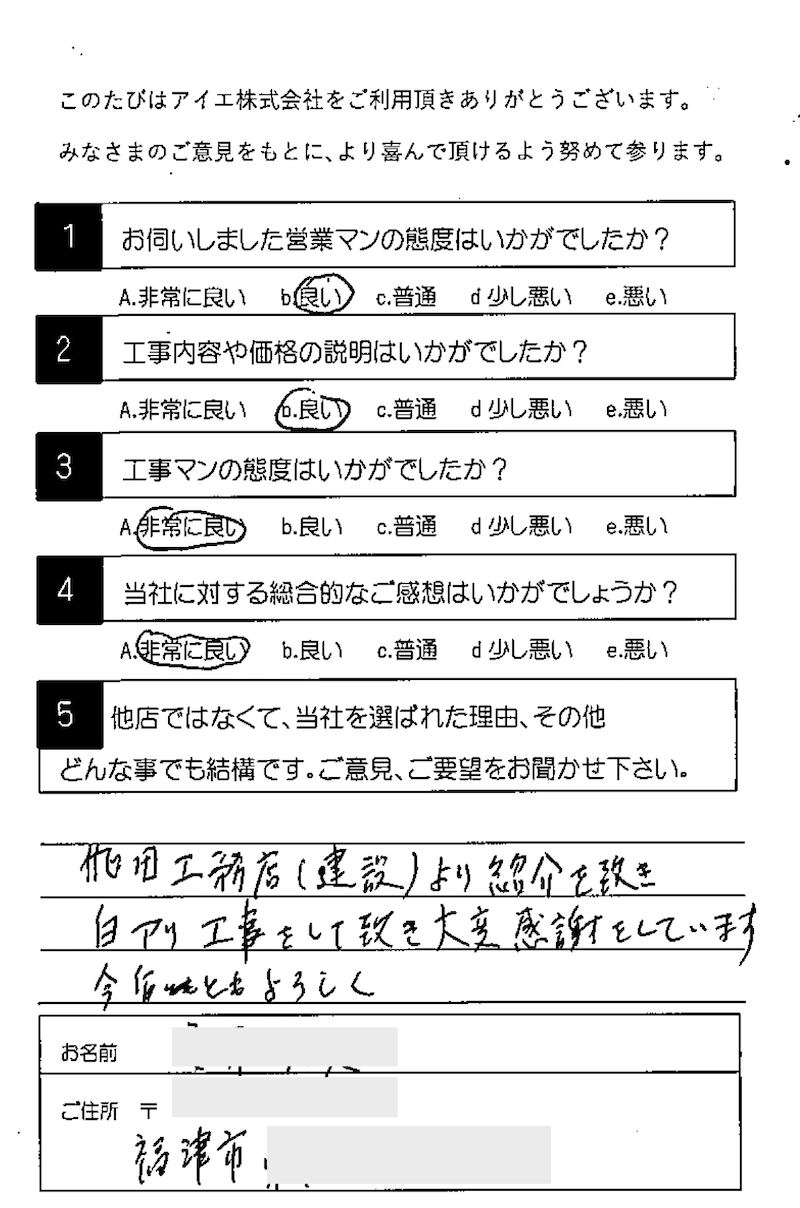 このたびはアイエ株式会社をご利用頂きありがとうございます。
みなさまのご意見をもとに、より喜んで頂けるよう努めて参ります。
1 お伺いしました営業マンの態度はいかがでしたか？
A.非常に良い b.良い c.普通 d 少し悪い e.悪い
2 工事内容や価格の説明はいかがでしたか？
A.非常に良い b.良い c.普通 d 少し悪い e.悪い
3 工事マンの態度はいかがでしたか？
A.非常に良い b.良い c.普通 d 少し悪い e.悪い
4 当社に対する総合的なご感想はいかがでしょうか？
A.非常に良い b.良い c.普通 d 少し悪い e.悪い
5 他店ではなくて、当社を選ばれた理由、その他
どんな事でも結構です。ご意見、ご要望をお聞かせ下さい。
工務店(建設)より紹介を致き
白アリ工事をして致き大変感謝をしています
今后ともよろしく
お名前
ご住所 〒
福津市